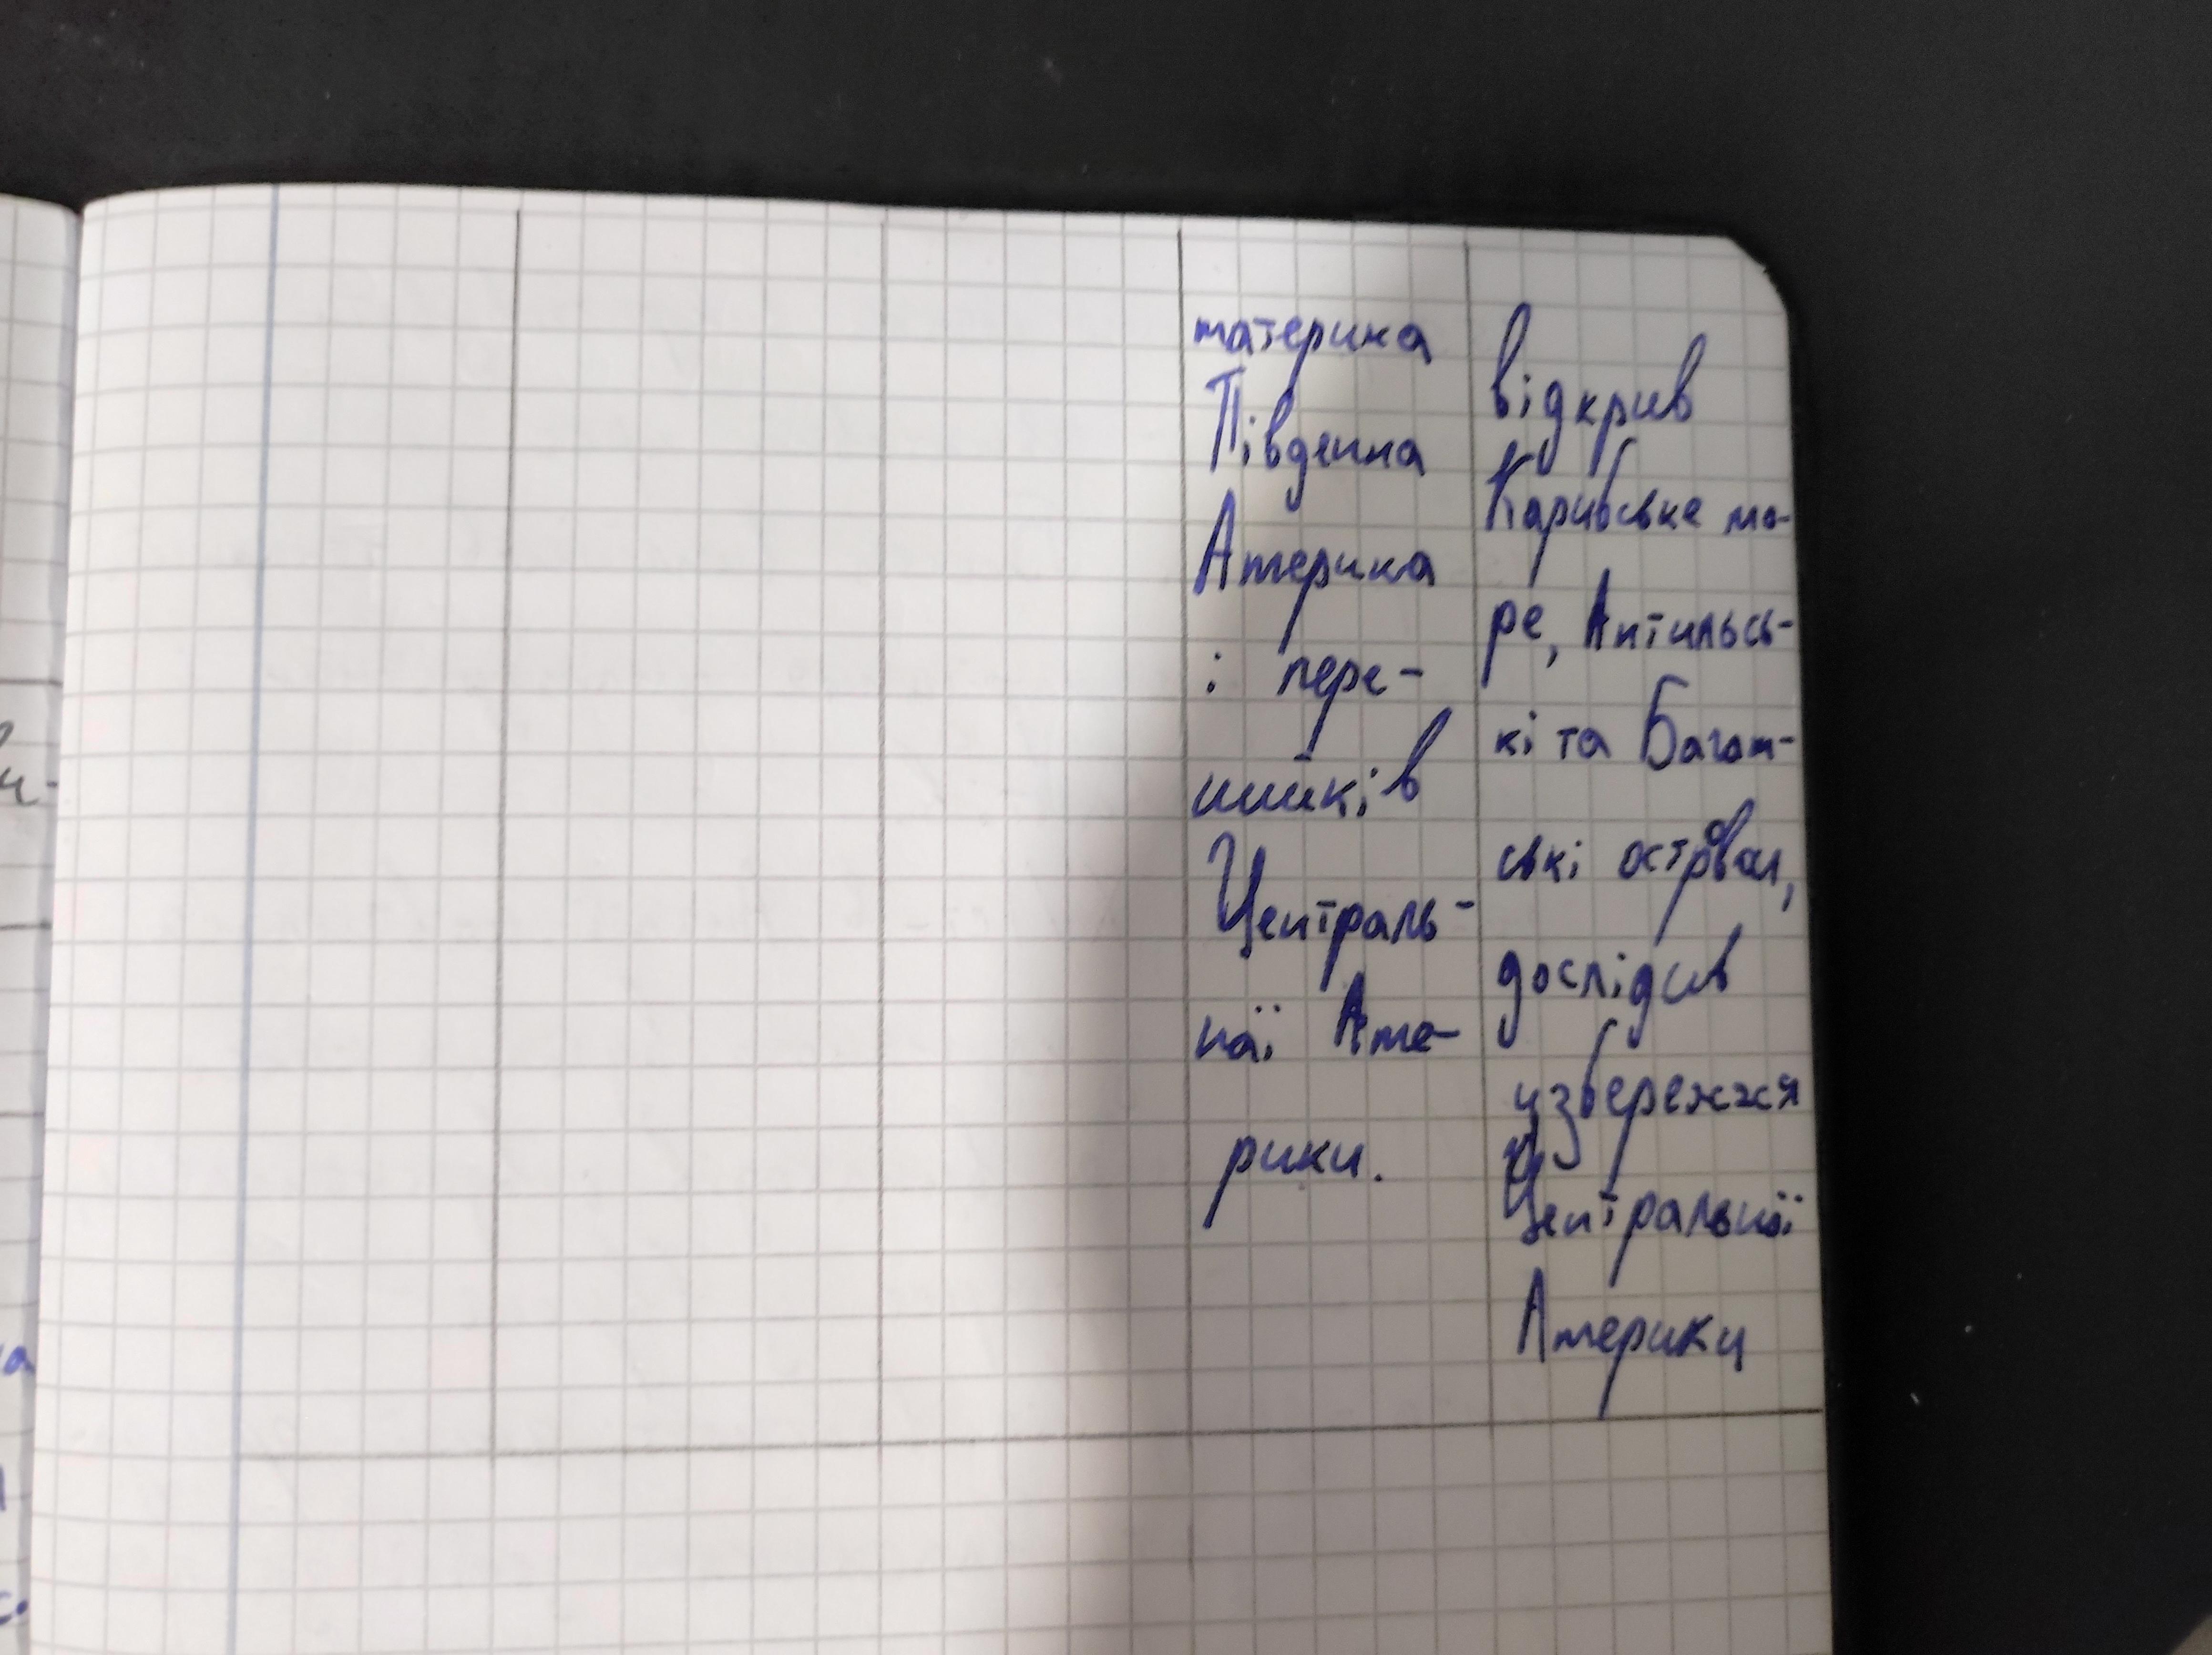 материка
Південна
Америка
і пере-
шийків
Централь-
ної Аме-
рики.
відкрив
Карибське мо-
ре, Антильсь-
кі та Багам-
ські острови,
дослідив
узбережжя
Центральної
Америки